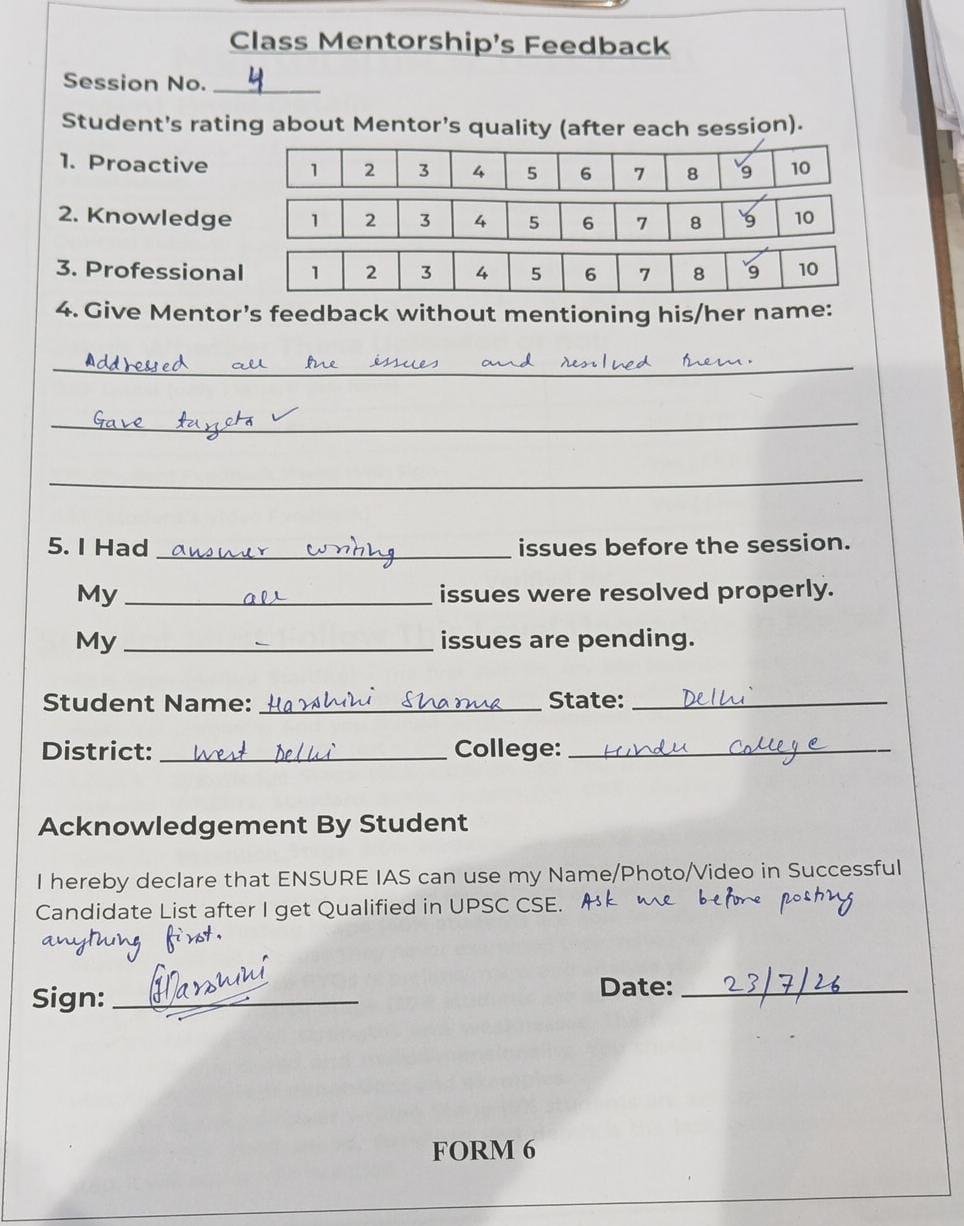 Class Mentorship's Feedback
Session No. 4
Student's rating about Mentor's quality (after each session).
1. Proactive 1 2 3 4 5 6 7 8 9 ✓ 10
2. Knowledge 1 2 3 4 5 6 7 8 9 ✓ 10
3. Professional 1 2 3 4 5 6 7 8 9 ✓ 10
4. Give Mentor's feedback without mentioning his/her name:
Addressed all the issues and resolved them.
Gave targets ✓
5. I Had answer writing issues before the session.
My all issues were resolved properly.
My – issues are pending.
Student Name: Harshini Sharma State: Delhi
District: West Delhi College: Hindu College
Acknowledgement By Student
I hereby declare that ENSURE IAS can use my Name/Photo/Video in Successful
Candidate List after I get Qualified in UPSC CSE. Ask me before posting
anything first.
Sign: Harshini Date: 23/7/26
FORM 6